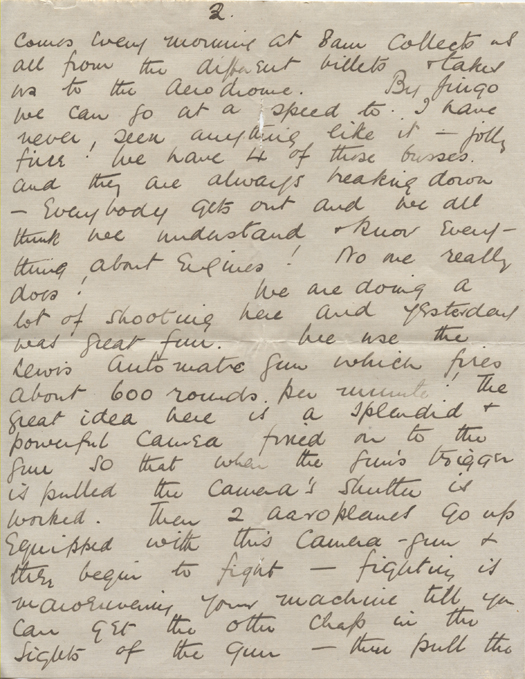 2.
comes every morning at 8am collects us
all from the different billets & takes
us to the Aerodrome. By jingo
we can go at a speed to. I have
never, seen anything like it – jolly
fine! We have 4 of those busses.
and they are always breaking down
– Everybody gets out and we all
think we understand & know every-
thing about Engines! No one really
does! We are doing a
lot of shooting here and yesterday
was great fun. We use the
Lewis Automatic gun which fires
about 600 rounds per minute! The
great idea here is a splendid &
powerful Camera fixed on to the
gun so that when the gun's trigger
is pulled the Camera's shutter is
worked. Then 2 aaroplanes go up
Equipped with this Camera-gun &
they begin to fight – fighting is
manoeuvering your machine till you
can get the other chap in the
sights of the gun – then pull the